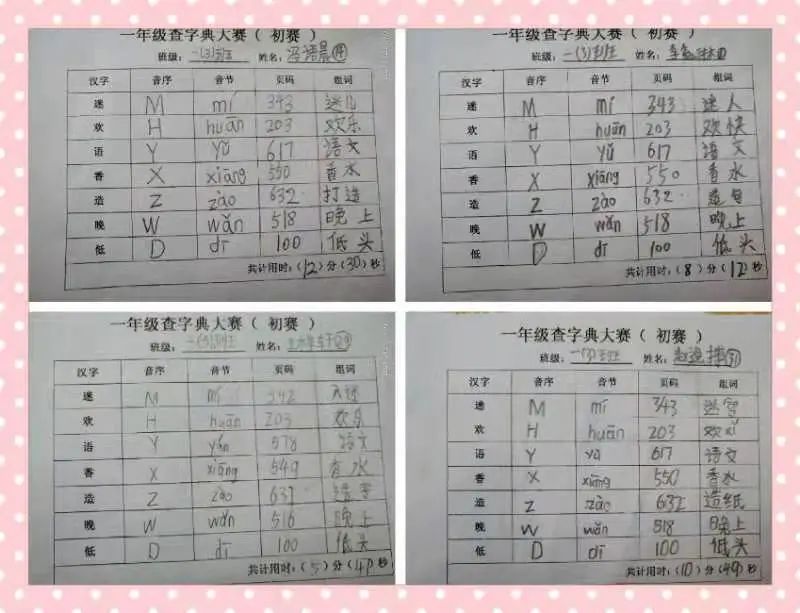 一年级查字典大赛（初赛）
班级：一(3)班 姓名：
汉字 音序 音节 页码 组词
迷 M mí 343 迷儿
欢 H huān 203 欢乐
语 Y yǔ 617 语文
香 X xiāng 550 香水
造 Z zào 632 打造
晚 W wǎn 518 晚上
低 D dī 100 低头
共计用时：（12）分（30）秒
一年级查字典大赛（初赛）
班级：一(3)班 姓名：
汉字 音序 音节 页码 组词
迷 M mí 343 迷人
欢 H huān 203 欢快
语 Y yǔ 617 语文
香 X xiāng 550 香水
造 Z zào 632
晚 W wǎn 518 晚上
低 D dī 100 低头
共计用时：（8）分（12）秒
一年级查字典大赛（初赛）
班级：一(3)班 姓名：
汉字 音序 音节 页码 组词
迷 M mí 342
欢 H huān 203 欢乐
语 Y 578 语文
香 X xiāng 549 香水
造 Z zào 631
晚 W wǎn 516 晚上
低 D dī 100 低头
共计用时：（5）分（41）秒
一年级查字典大赛（初赛）
班级：一(3)班 姓名：
汉字 音序 音节 页码 组词
迷 M mí 343 迷宫
欢 H huān 203 欢xǐ
语 Y yǔ 617 语文
香 X xiāng 550 香水
造 Z zào 632 造纸
晚 W wǎn 518 晚上
低 D dī 100 低头
共计用时：（10）分（49）秒